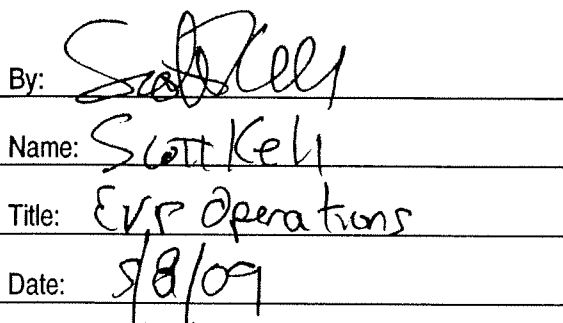 By: Scott Kell
Name: Scott Kell
Title: EVP Operations
Date: 5/8/09